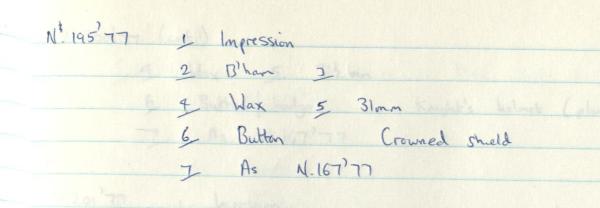 Nt. 195'77 1 Impression
2 B'ham 3
4 Wax 5 31mm
6 Button Crowned shield
7 As N.167'77